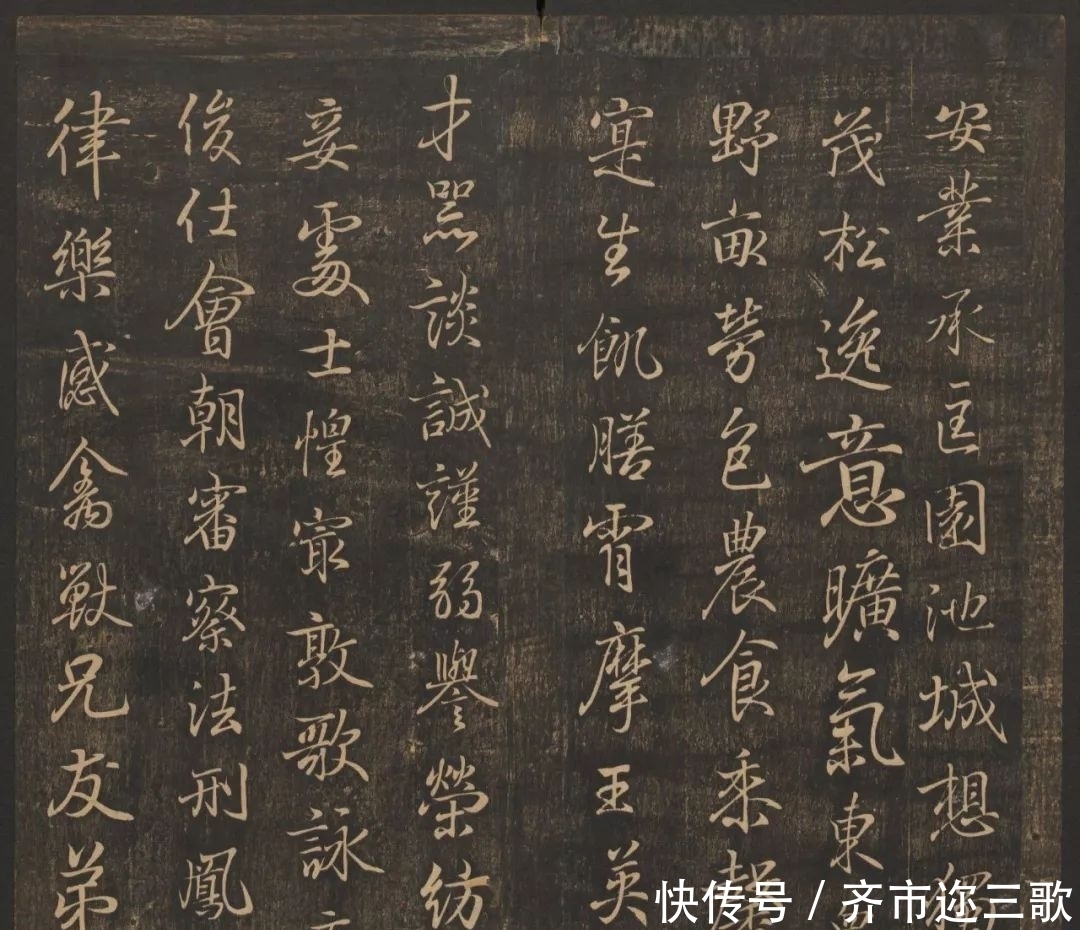 安業承匡園池城想獨
茂松逸意曠氣東
野畝勞包農食黍馨
寔生飢膳宵摩王英
才器談誠謹弱譽榮紡
妾處士惶寂敦歌詠
俊仕會朝審察法刑鳳
律樂感禽獸兄友弟
快传号 / 齐市迩三歌